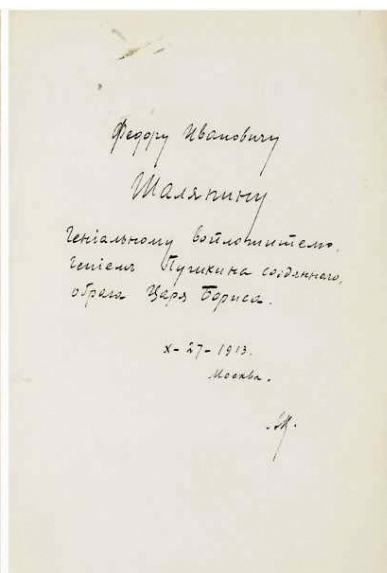 Федору Ивановичу
Шаляпину
Генiальному воплотителю,
генiемъ Пушкина созданнаго,
образа Царя Бориса.
X-27-1913.
Москва.